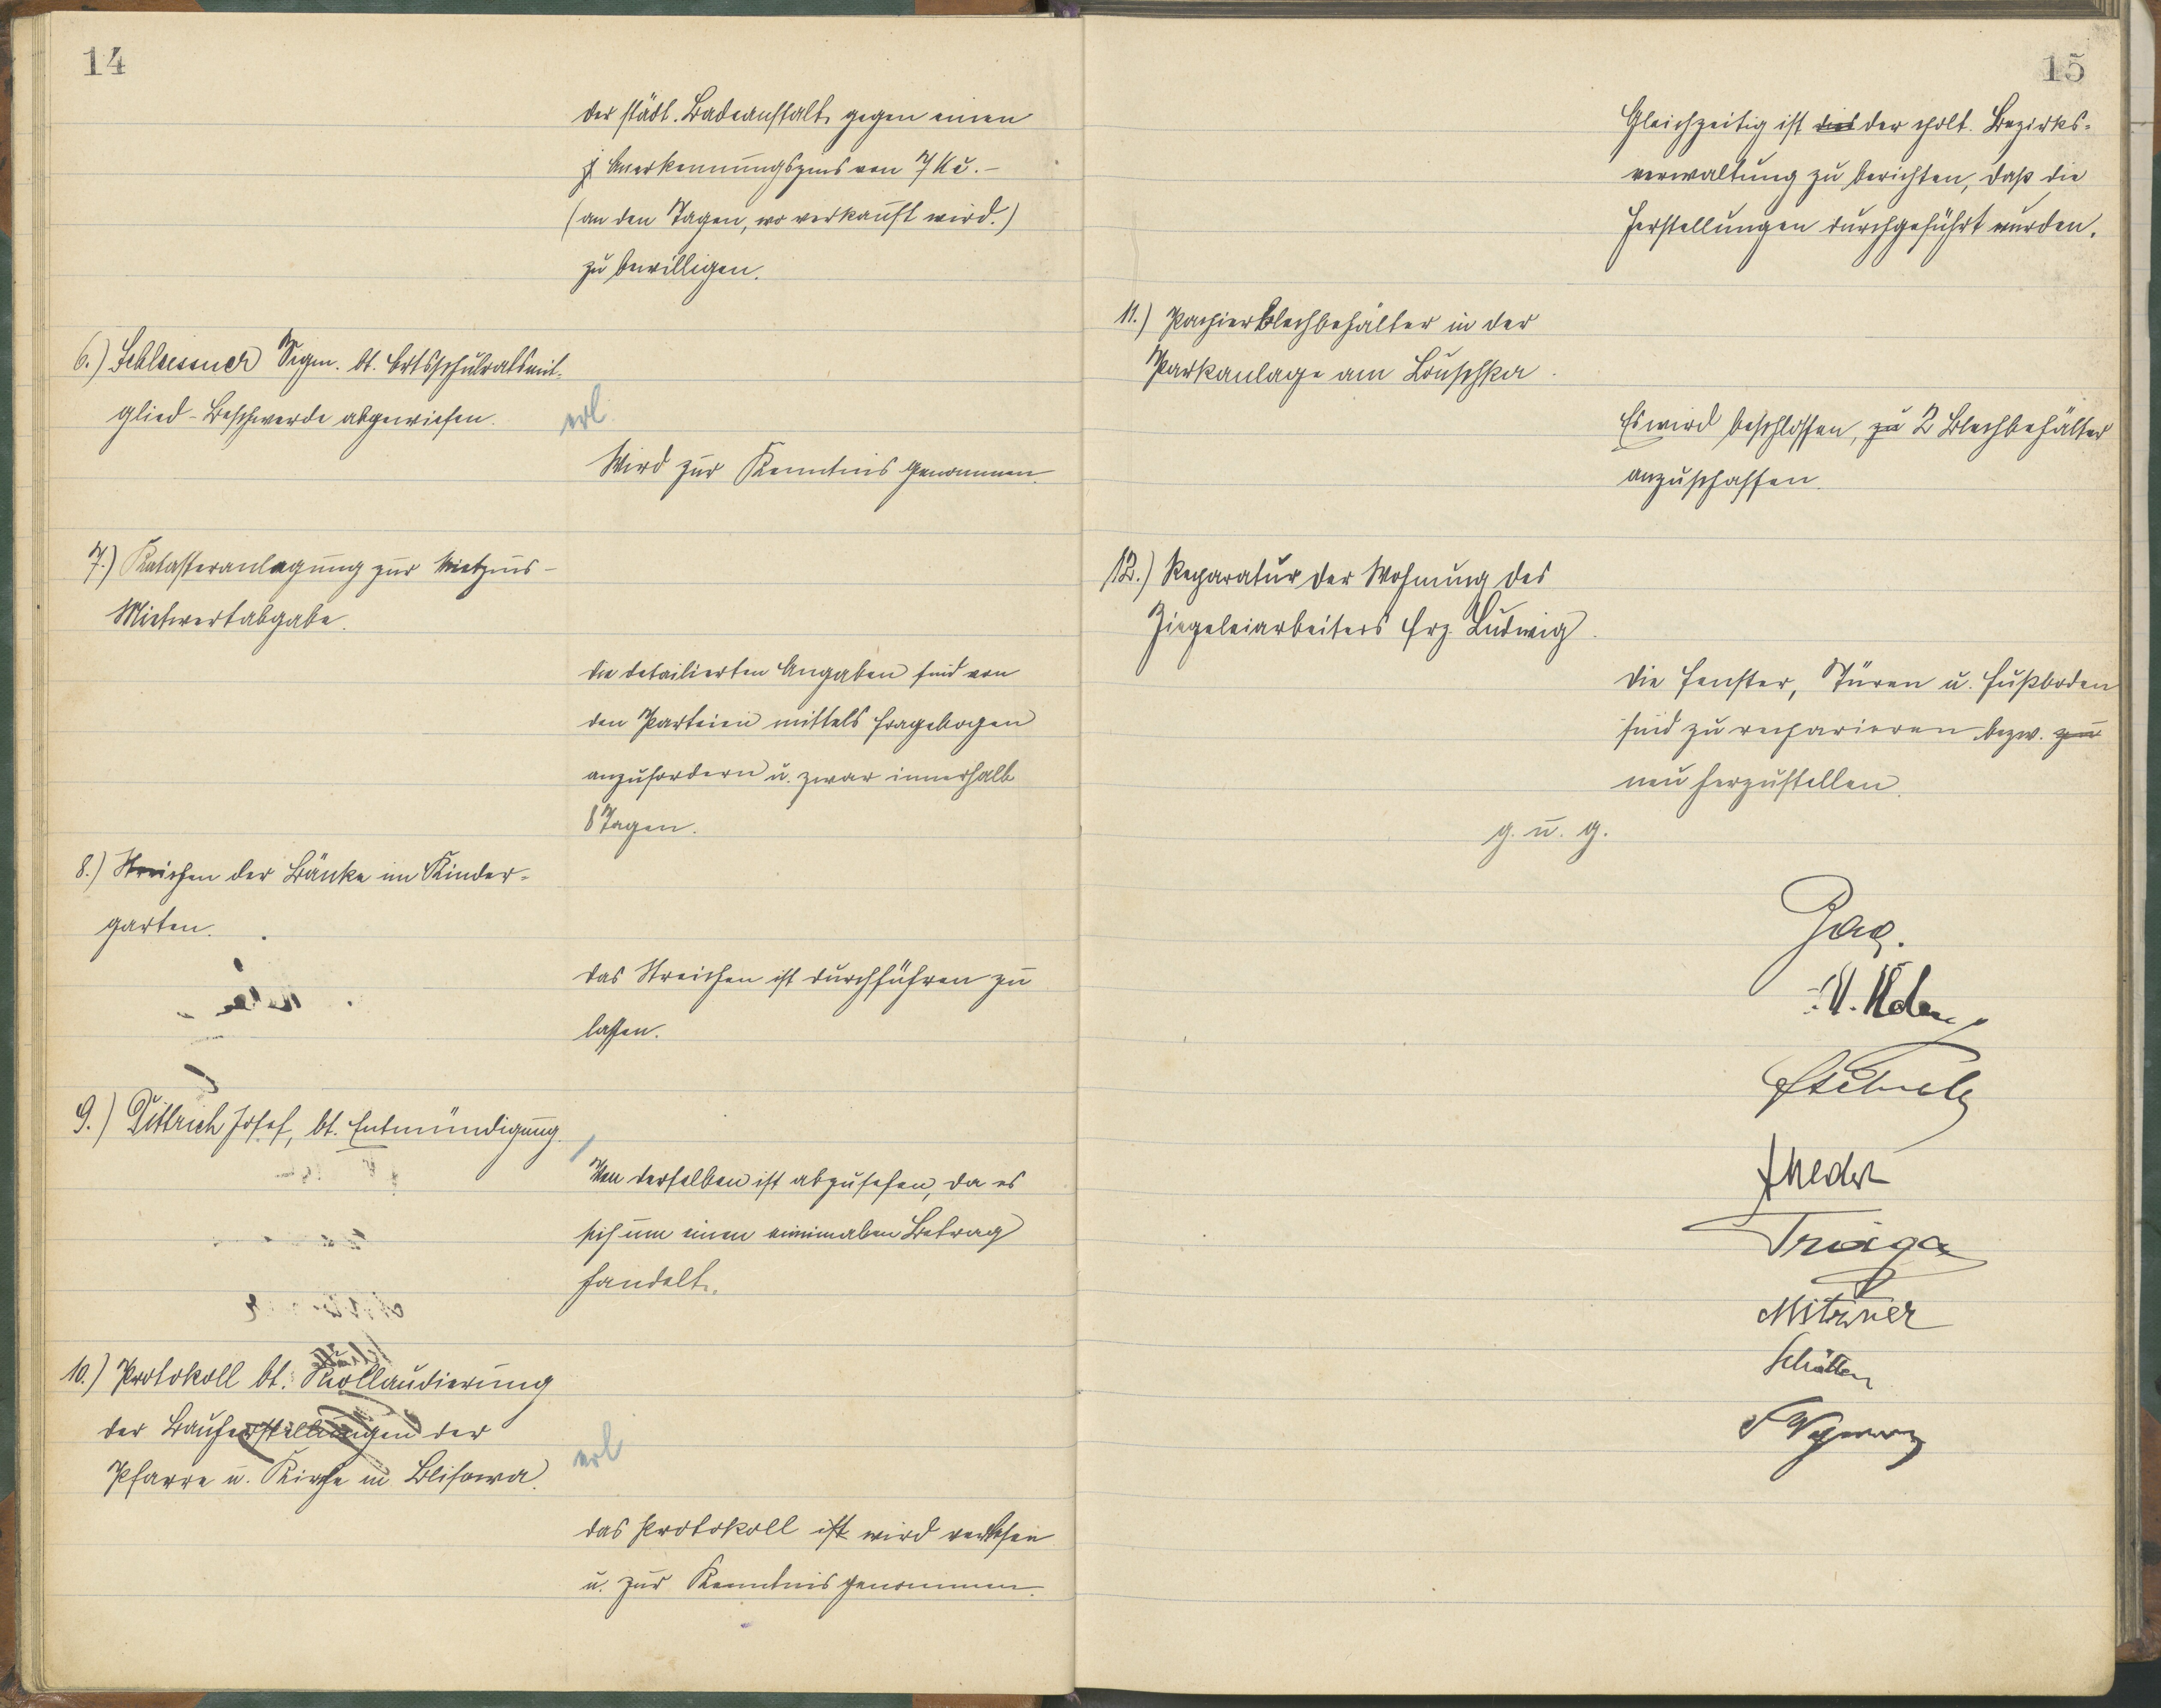 14
der städt. Badeanstalt gegen einen
Anerkennungszins von 7 Kč.-
(an den Tagen, wo verkauft wird.)
zu bewilligen.
6.) Schleissner Sigm. bt. Ortsschulratsmit-
glied-Beschwerde abgewiesen.
erl.
Wird zur Kenntnis genommen.
7.) Katasteranlegung zur Mietzins-
Mietwertabgabe.
Die detailierten Angaben sind von
den Parteien mittels Fragebogen
anzufordern u. zwar innerhalb
8 Tagen.
8.) Streichen der Bänke im Kinder-
garten.
Das Streichen ist durchführen zu
lassen.
9.) Dittrich Josef, bt. Entmündigung.
Von derselben ist abzusehen, da es
sich um einen minimalen Betrag
handelt.
10.) Protokoll bt. Kollaudierung
der Bauherstellungen der
Pfarre u. Kirche in Blisowa.
erl
Das Protokoll ist wird verlesen
u. zur Kenntnis genommen.
15
Gleichzeitig ist dies der Bezirks-
verwaltung zu berichten, daß die
Herstellungen durchgeführt wurden.
11.) Papierblechbehälter in der
Parkanlage am Louschka.
Es wird beschlossen, zu 2 Blechbehälter
anzuschaffen.
12.) Reparatur der Wohnung des
Ziegeleiarbeiters Frz. Ludwig.
Die Fenster, Türen u. Fußboden
sind zu reparieren bezw. zu
neu herzustellen.
g. u. g.
Triaga
Schötten